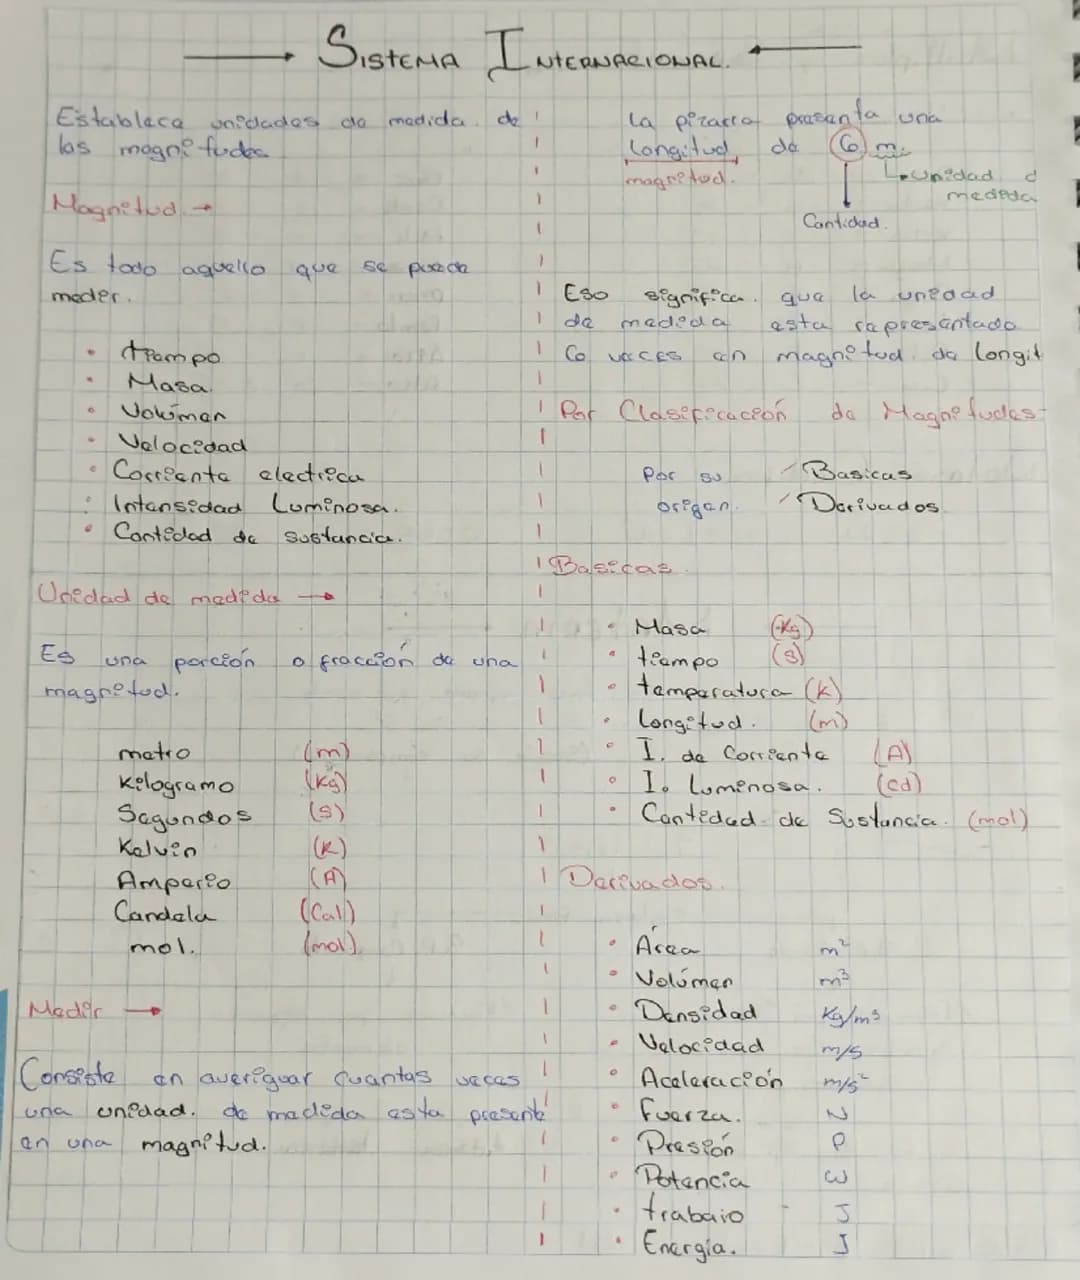 SISTEMA INTERNACIONAL.
Establece unidades de medida de
las magnitudes
Magnitud →
Es todo aquello que se puede
medir.
• tiempo
• Masa.
• Volúmen
• Velocidad
• Corriente electrica
• Intensidad Luminosa.
• Cantidad de sustancia.
Unidad de medida →
Es una porción o fracción de una
magnitud.
metro (m)
Kilogramo (Kg)
Segundos (S)
Kelvin (K)
Amperio (A)
Candela (Cal)
mol. (mol)
Medir →
Consiste en averiguar cuantas veces
una unidad. de medida esta presente
en una magnitud.
la pizarra presenta una
longitud de 6 m.
magnitud. unidad d
medida
Cantidad.
Eso significa. que la unidad
de medida esta representado
6 veces en magnitud de longit
Por Clasificación de Magnitudes
Por su Basicas
origen. Derivados
Basicas
• Masa (Kg)
• tiempo (s)
• temperatura (K)
• Longitud. (m)
• I. de Corriente (A)
• I. luminosa. (cd)
• Cantidad de Sustancia. (mol)
Derivados.
• Área m²
• Volúmen m³
• Densidad Kg/m³
• Velocidad m/s
• Aceleración m/s²
• fuerza. N
• Presión P
• Potencia W
• trabajo J
• Energía. J